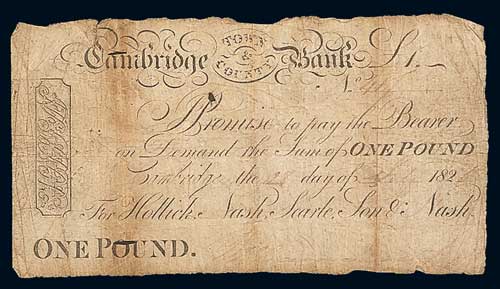 Cambridge TOWN & COUNTY Bank £1.—
No.
I Promise to pay the Bearer
on Demand the Sum of ONE POUND
Cambridge the day of 182
For Hollick, Nash, Searle, Son & Nash
ONE POUND.